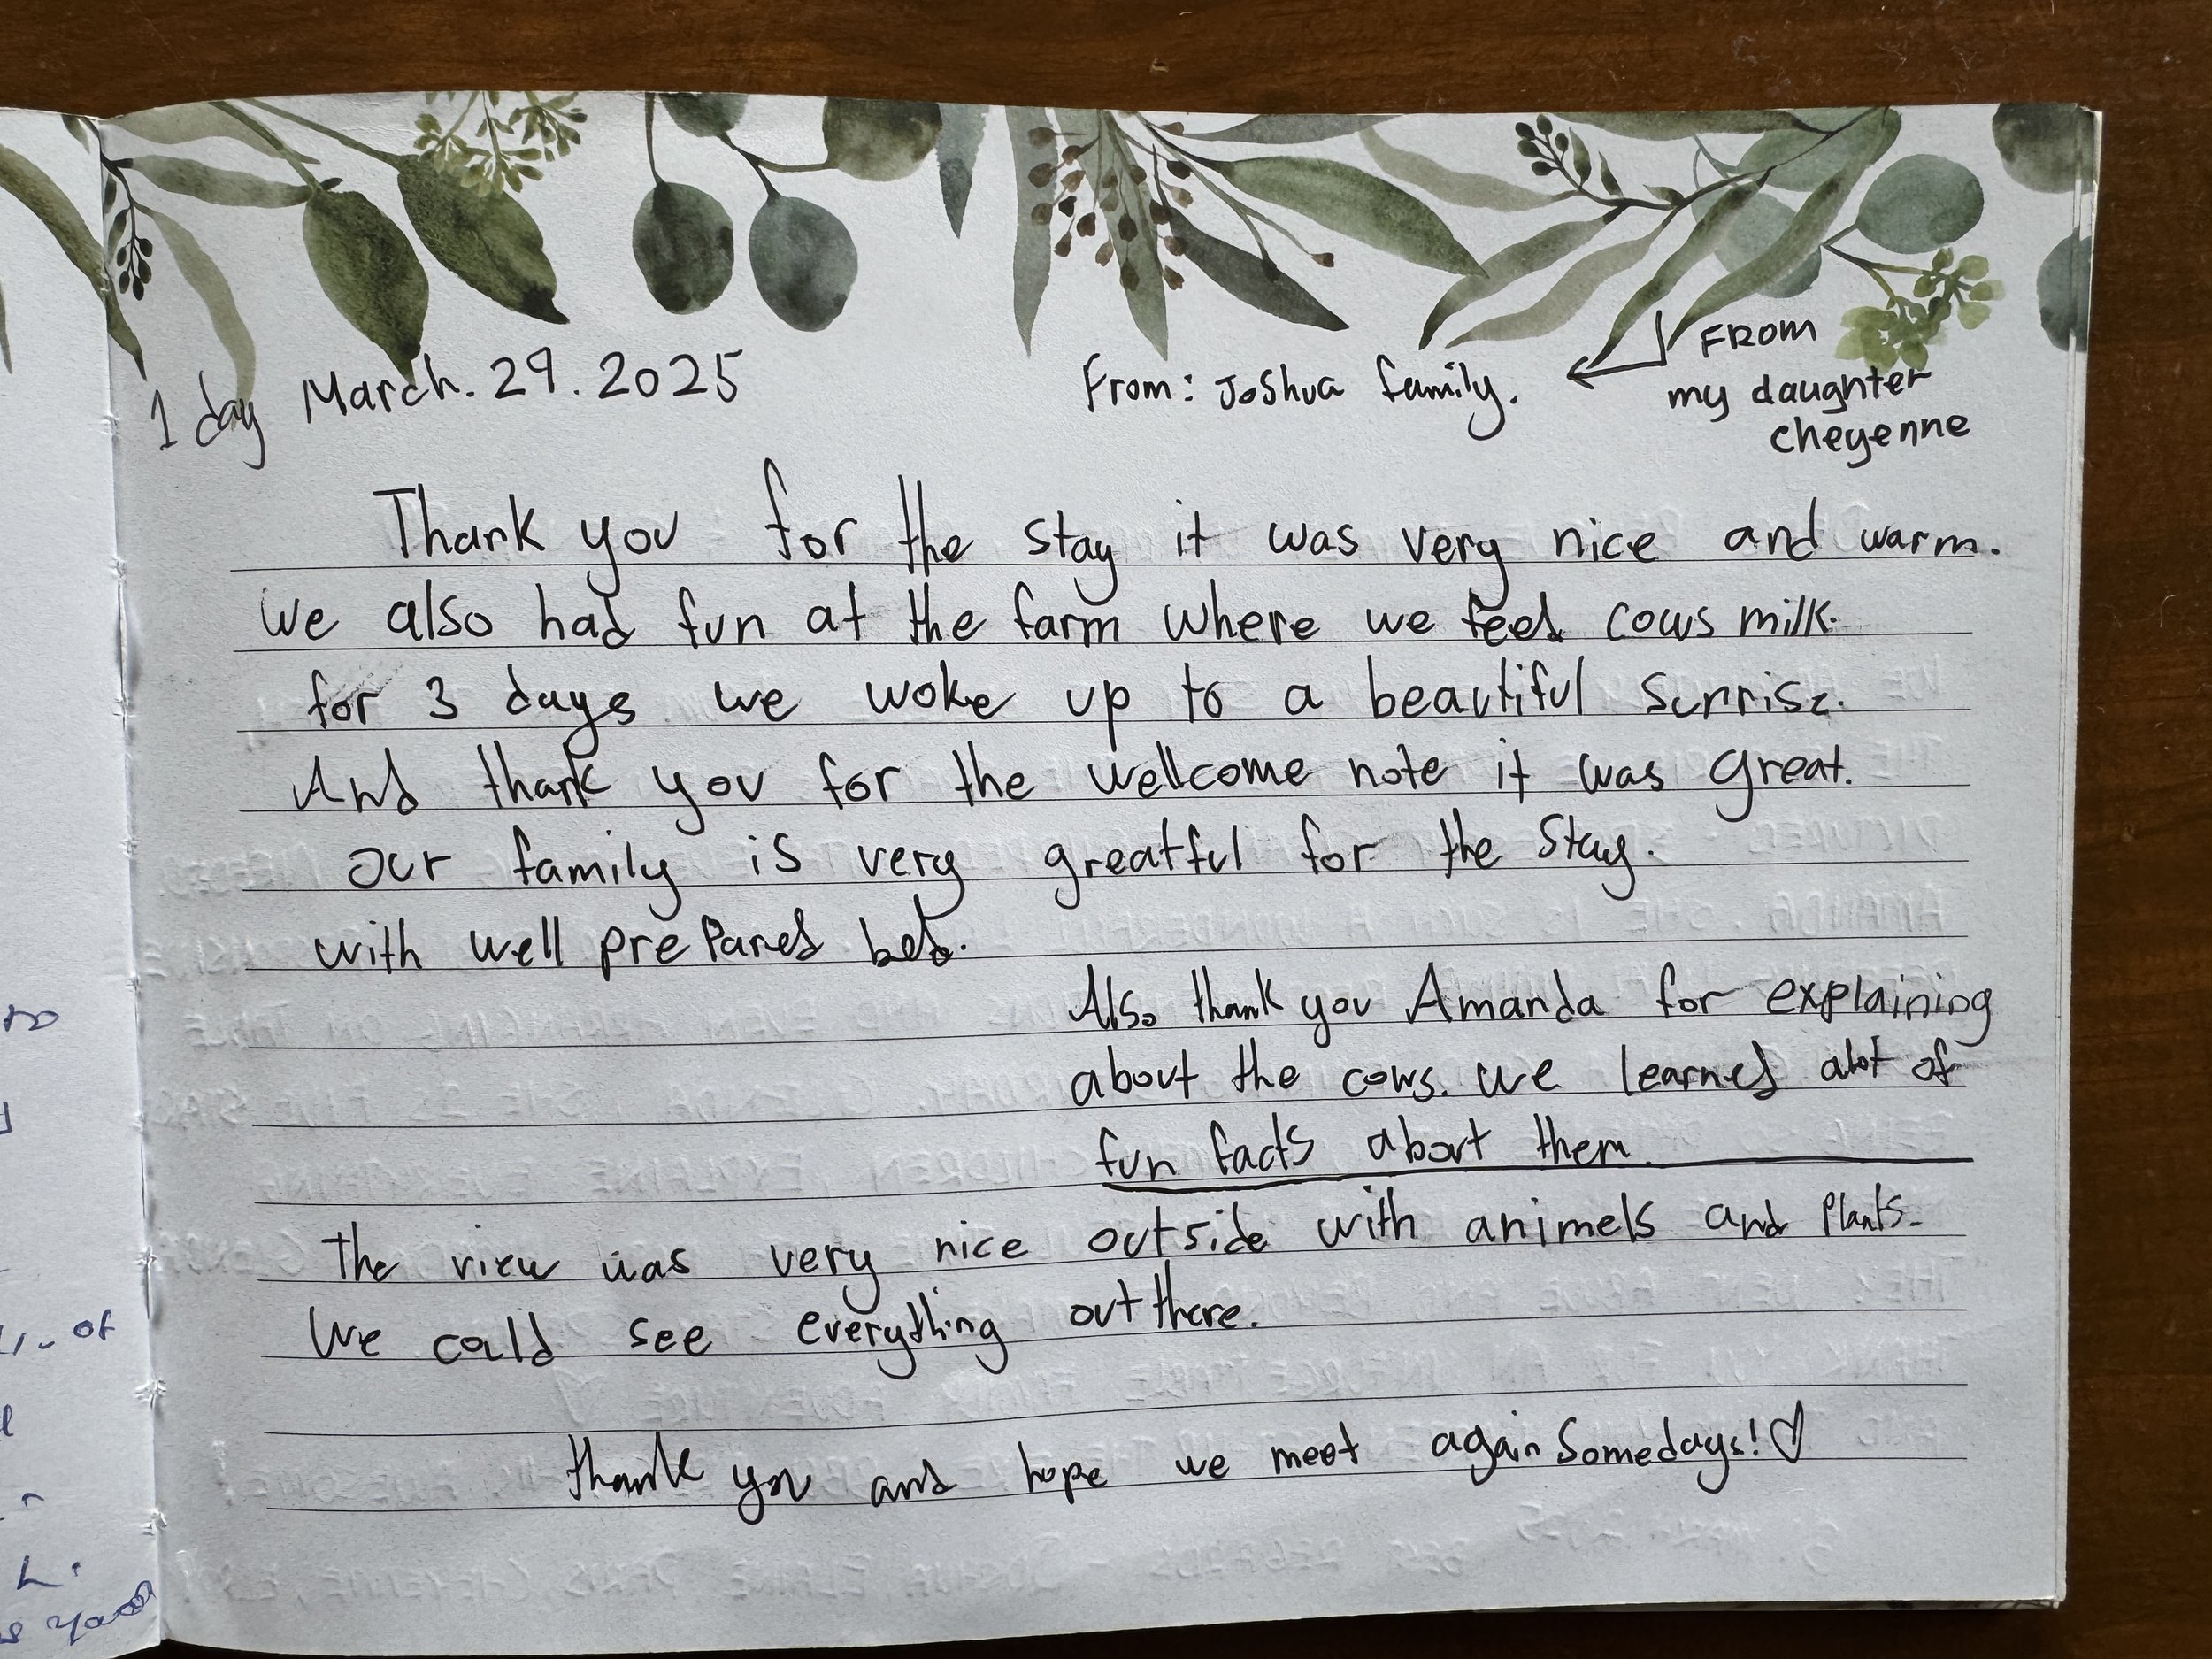 1 day March. 29. 2025
From: Joshua family.
FROM
my daughter
cheyenne
Thank you for the stay it was very nice and warm.
We also had fun at the farm where we feed cows milk.
for 3 days we woke up to a beautiful sunrise.
And thank you for the wellcome note it was great.
our family is very greatful for the stay.
with well prepared bed.
Also thank you Amanda for explaining
about the cows. we learned alot of
fun facts about them
The view was very nice outside with animels and plants.
We could see everything out there.
thank you and hope we meet again Somedays! ♡
of